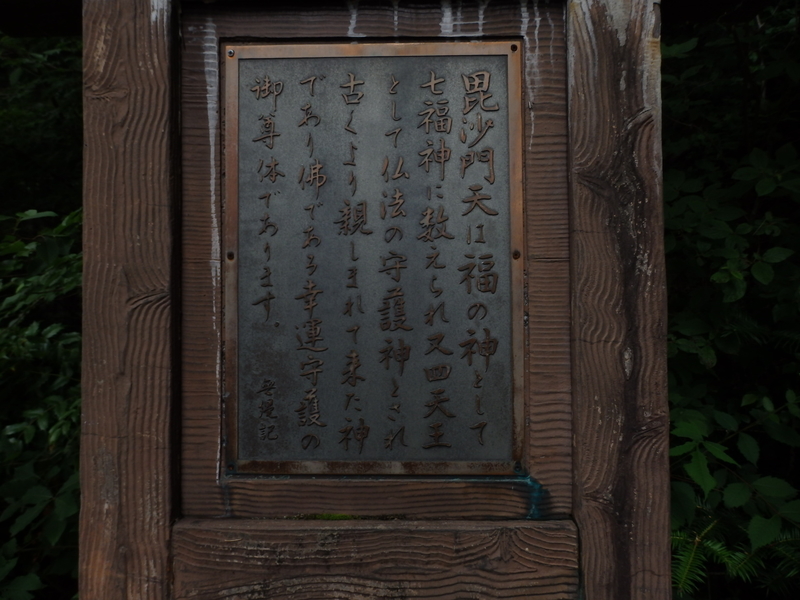 毘沙門天は福の神として
七福神に数えられ又四天王
として仏法の守護神とされ
古くより親しまれて来た神
であり佛である幸運守護の
御尊体であります。